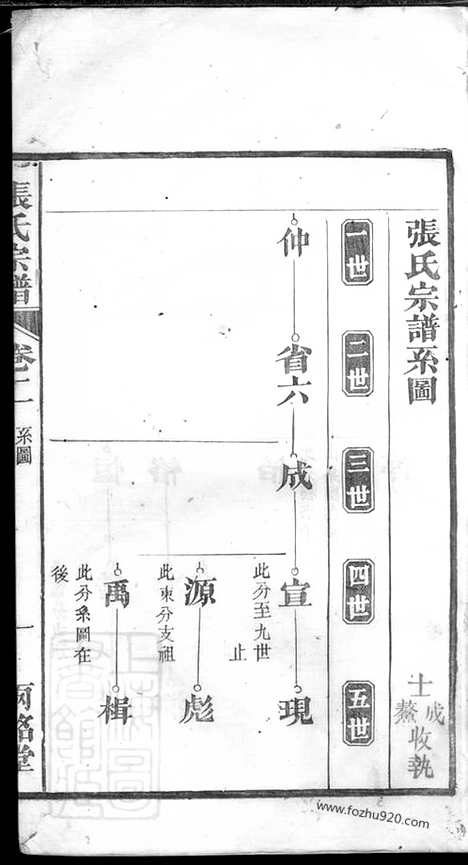 張氏宗譜系圖
士成
鰲收執
一世
二世
三世
四世
五世
仲
省六
成
宣
現
此分至九世
止
源
彪
此東分支祖
禹
楫
此分系圖在
後
張氏宗譜
卷二
系圖
一
百銘堂
www.fozhu920.com